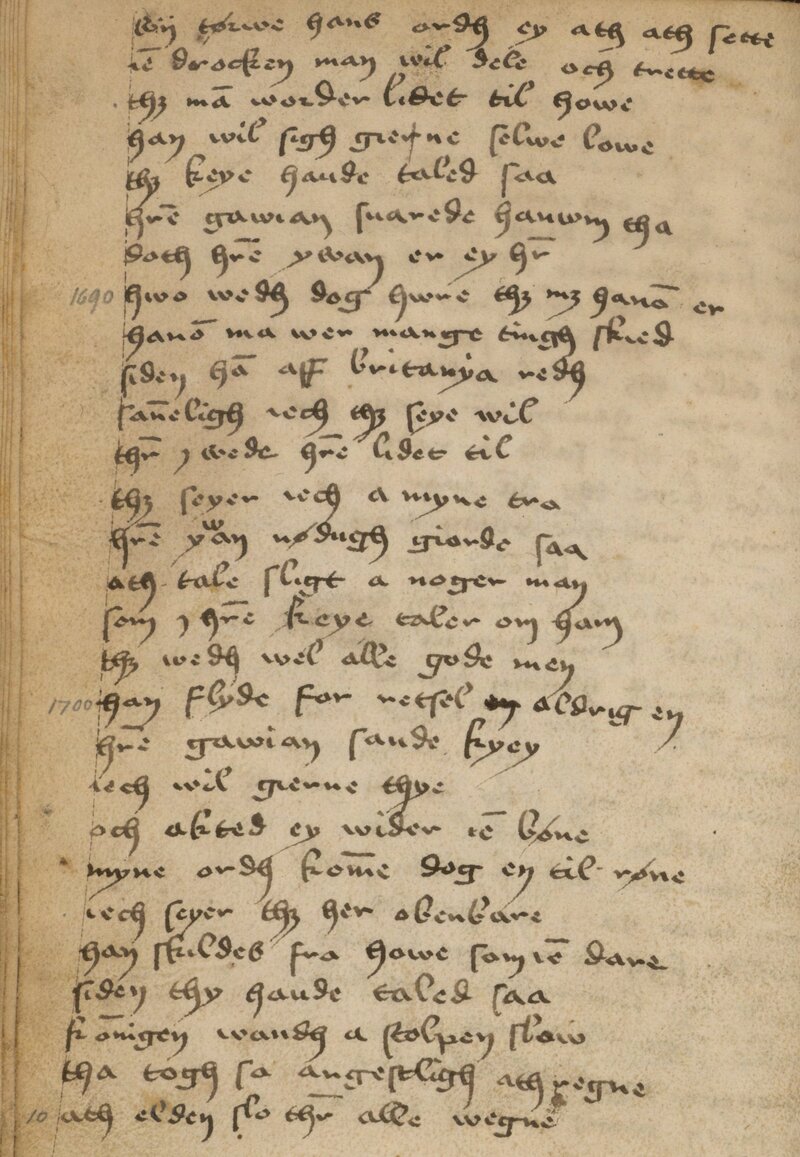 wij tørwe hans ordh ey ath ath sette
iē drocken man wil dele och trette
thz mā worder lidet til howe
han wil sigh gierne selwe lowe
thz keye haude taled saa
hrē gawian suarede hanwm tha
doth hrē ywan er ey hr̄
1690 hwo wedh dog hwre thz mz hanō er
hanō ma wer mange tingh skied
siden hā aff britanya redh
san̄eligh iech thz seye wil
thr̄ j wede hrē lidet til
thz seyer iech a myne tro
hrē ywan nødugh giorde saa
ath tale sligt a noger man
som j hrē keye taler om ham
thz wedh wel alle gode men
1700 han flyde for retsel aldrig en
hrē gawian saude kyey
iech wil gierne thye
och akted ey wider iē bøne
myne ordh kom̄e dog en til røne
iech seyer thz her obenbare
han skildes fra howe som iē dare
siden thy haude taled saa
kōnigen wandh a stolpen slow
tha togh so angestligh ath regne
10 ath elden slo thr̄ alle wegne